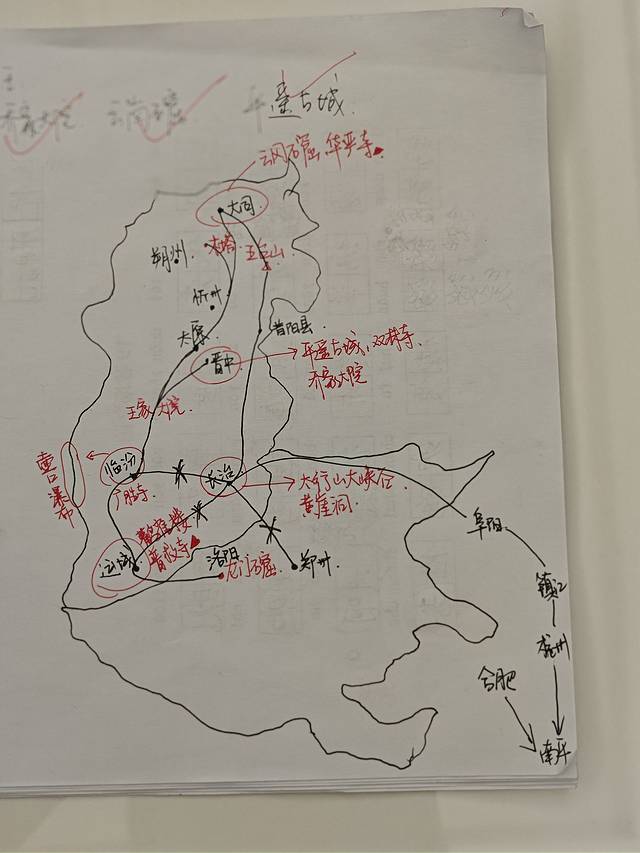 王
乔家大院 云岗石窟 平遥古城.
云冈石窟、华严寺
大同.
朔州
木塔
五台山
忻州
太原
昔阳县.
晋中
平遥古城、双林寺、
乔家大院
王家大院
壶口瀑布
临汾
广胜寺
长治
太行山大峡谷
黄崖洞.
鹳雀楼
普救寺
运城
洛阳
龙门石窟
郑州.
阜阳
镇江
杭州
合肥
南平